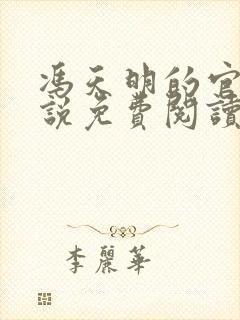 馮天明的官
說免費閱讀
李麗華